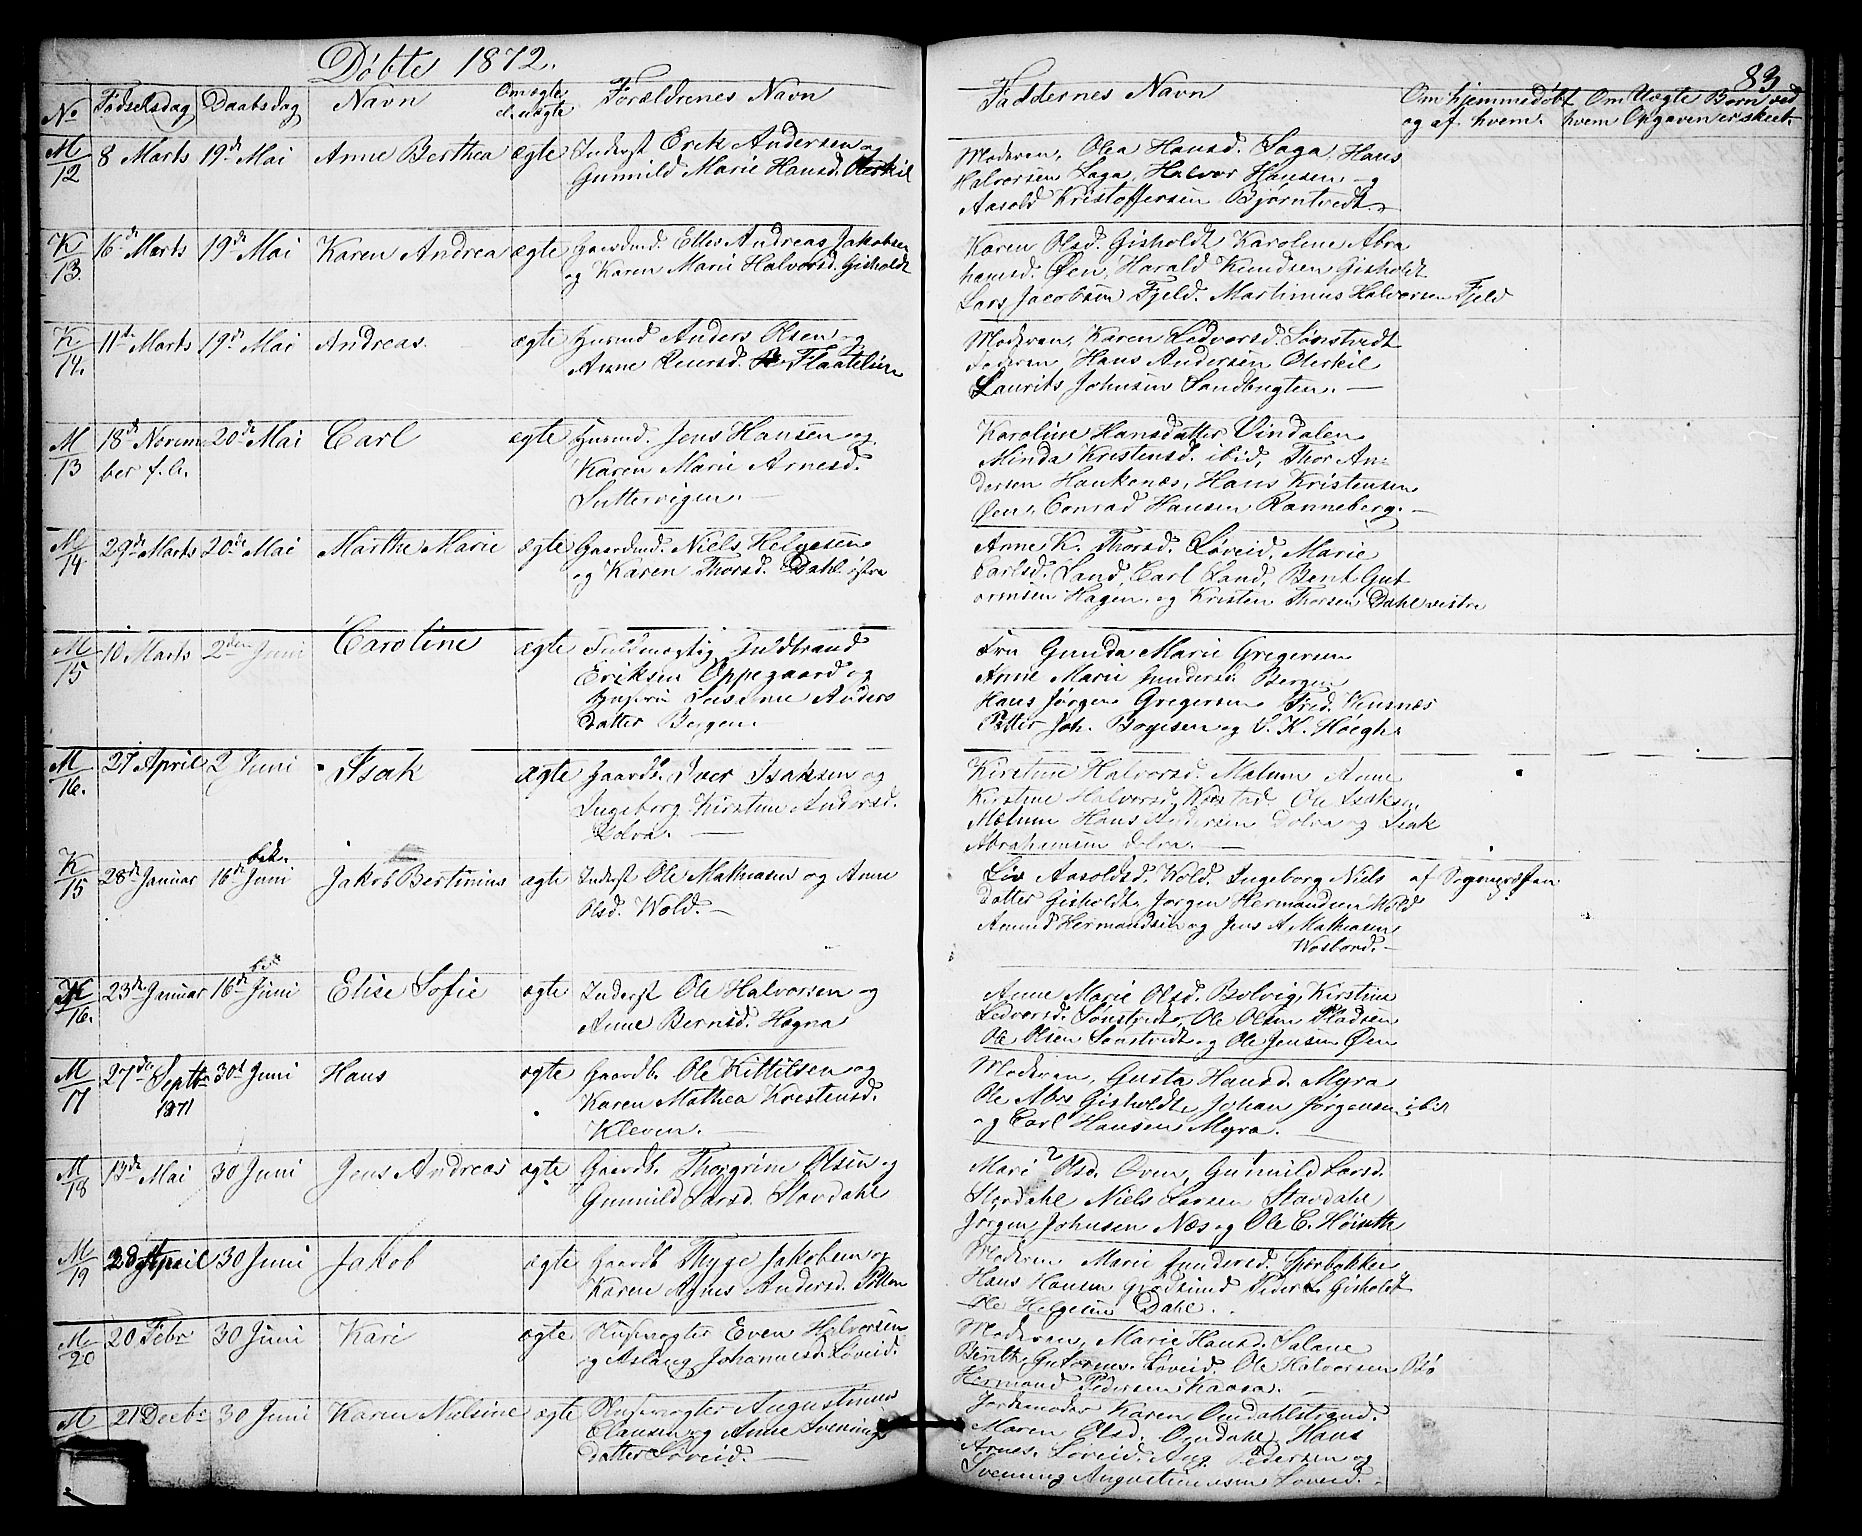 Døbte 1872.
83
No Fødselsdag Daabsdag Navn Om ægte el. uægte Forældrenes Navn Faddernes Navn Om hjemmedøbt og af hvem. Om Uægte Børn ved hvem Opgaven er skeet.
M/12 8 Marts 19de Mai Anne Berthea ægte Inderst Erik Andersen og
Gunnild Marie Hansd. Oterkil
Moderen, Olea Hansd. Saga, Hans
Halvorsen Saga, Halvor Hansen, og
Aasold Kristoffersen Bjørntvedt.
K/13. 16de Marts 19de Mai Karen Andrea ægte Gaardmd. Ellev Andreas Jakobsen
og Karen Marie Halvorsd. Gisholdt
Karen Olsd. Gisholdt Karoline Abra
hamsd. Øen, Harald Knudsen Gisholdt
Lars Jacobsen Fjeld. Martinus Halvorsen Fjeld
K/14. 11te Marts 19de Mai Andreas. ægte Husmd Anders Olsen og
Anne Reiersd. Flaatelien
Moderen, Karen Ledvorsd. Sønstvedt
Faderen Hans Andersen Oterkil
Laurits Johnsen Sandbugten. —
M/13 18de Novem 20de Mai Carl ægte Husmd. Jens Hansen og
ber f. A. Karen Marie Arnesd.
Suttervigen. —
Karoline Hansdatter Vindalen
Minda Kristensd. ibid, Thor An-
dersen Haukenæs, Hans Kristensen
Øen, Conrad Hansen Ranneberg. —
M/14 29de Marts 20de Mai Marthe Marie ægte Gaardmd. Niels Helgesen
og Karen Thorsd. Dahl østre
Anne K. Thorsd. Løveid, Marie
Carlsd. Land, Carl Land, Bent Gut
ormsen Hagen, og Kristen Thorsen Dahl vestre
M/15 10 Marts 2den Juni Caroline ægte Fuldmægtig Guldbrand
Eriksen Oppegaard og
Hustru Susanne Anders
datter Bergen. —
Fru Gunda Marie Gregersen
Anne Marie Gundersd. Bergen
Hans Jørgen Gregersen Fred. Vensnæs
Petter Joh. Boyesen og C. K. Höegh.
M/16. 27 April 2 Juni Isak ægte Gaardb. Iver Isaksen og
Ingeborg Kirstine Andersd.
Dolva. —
Kirstine Halvorsd. Mælum Anne
Kirstine Halvorsd. Ole Isaksen
Mælum Hans Andersen Dolva og Isak
Abrahamsen Dolva. —
K/15 28de Januar bek. 16de Juni Jakob Bertinius ægte Inderst Ole Mathiasen og Anne
Olsd. Wold. —
Liv Aasoldsd. Wold. Ingeborg Niels af Sognepræsten
datter Gisholdt, Jørgen Hermandsen Wold
Amund Hermandsen og Jens A Mathiasen
K/16. 23de Januar bek 16de Juni Elise Sofie ægte Inderst Ole Halvorsen og
Anne Berntsd. Hogna
Anne Marie Olsd. Bolvig, Kirstine
Ledvorsd. Sønstvedt, Ole Olsen Pladsen
Ole Olsen Sønstvedt og Ole Jensen Øen
M/17 27de Septbr 1871 30d Juni Hans ægte Gaardb. Ole Kittilsen og
Karen Mathea Kristensd.
Kleven. —
Moderen, Gusta Hansd. Myra
Ole Abr. Gisholdt, Johan Jørgensen ibid
og Carl Hansen Myra. —
M/18 13de Mai 30 Juni Jens Andreas ægte Gaardb. Thorgrim Olsen og
Gunnild Larsd. Stavdahl
Mari Olsd. Oven, Gunnild Larsd.
Stavdahl Niels Larsen Stavdahl
Jørgen Johnsen Næs og Ole C. Høiseth
M/19 April 30 Juni Jakob ægte Gaardb Thyge Jakobsen og
Karen Agnes Andersd.
Moderen Marie Gundersd. Sperbakken
Hans Hansen Grødsund Peder L. Gisholdt
Ole Helgesen Dahl.
M/20 20 Febr 30 Juni Kari ægte Husmogter Even Halvorsen
og Aslaug Johannesd. Løveid.
Moderen, Marie Hansd. Salane
Berith Gutorms. Løveid. Ole Halvorsen Bø
Hermand Pedersen Kaasa. —
M 21 Decbr 30 Juni Karen Nielsine ægte Husmogter Augustinus
Clausen og Anne Svenings
datter Løveid. —
Jordemoder Karen Omdahlstrand.
Maren Olsd. Omdahl, Hans
Arnes. Løveid. Aug. Pedersen og
Svenning Augustinussen Løveid. —